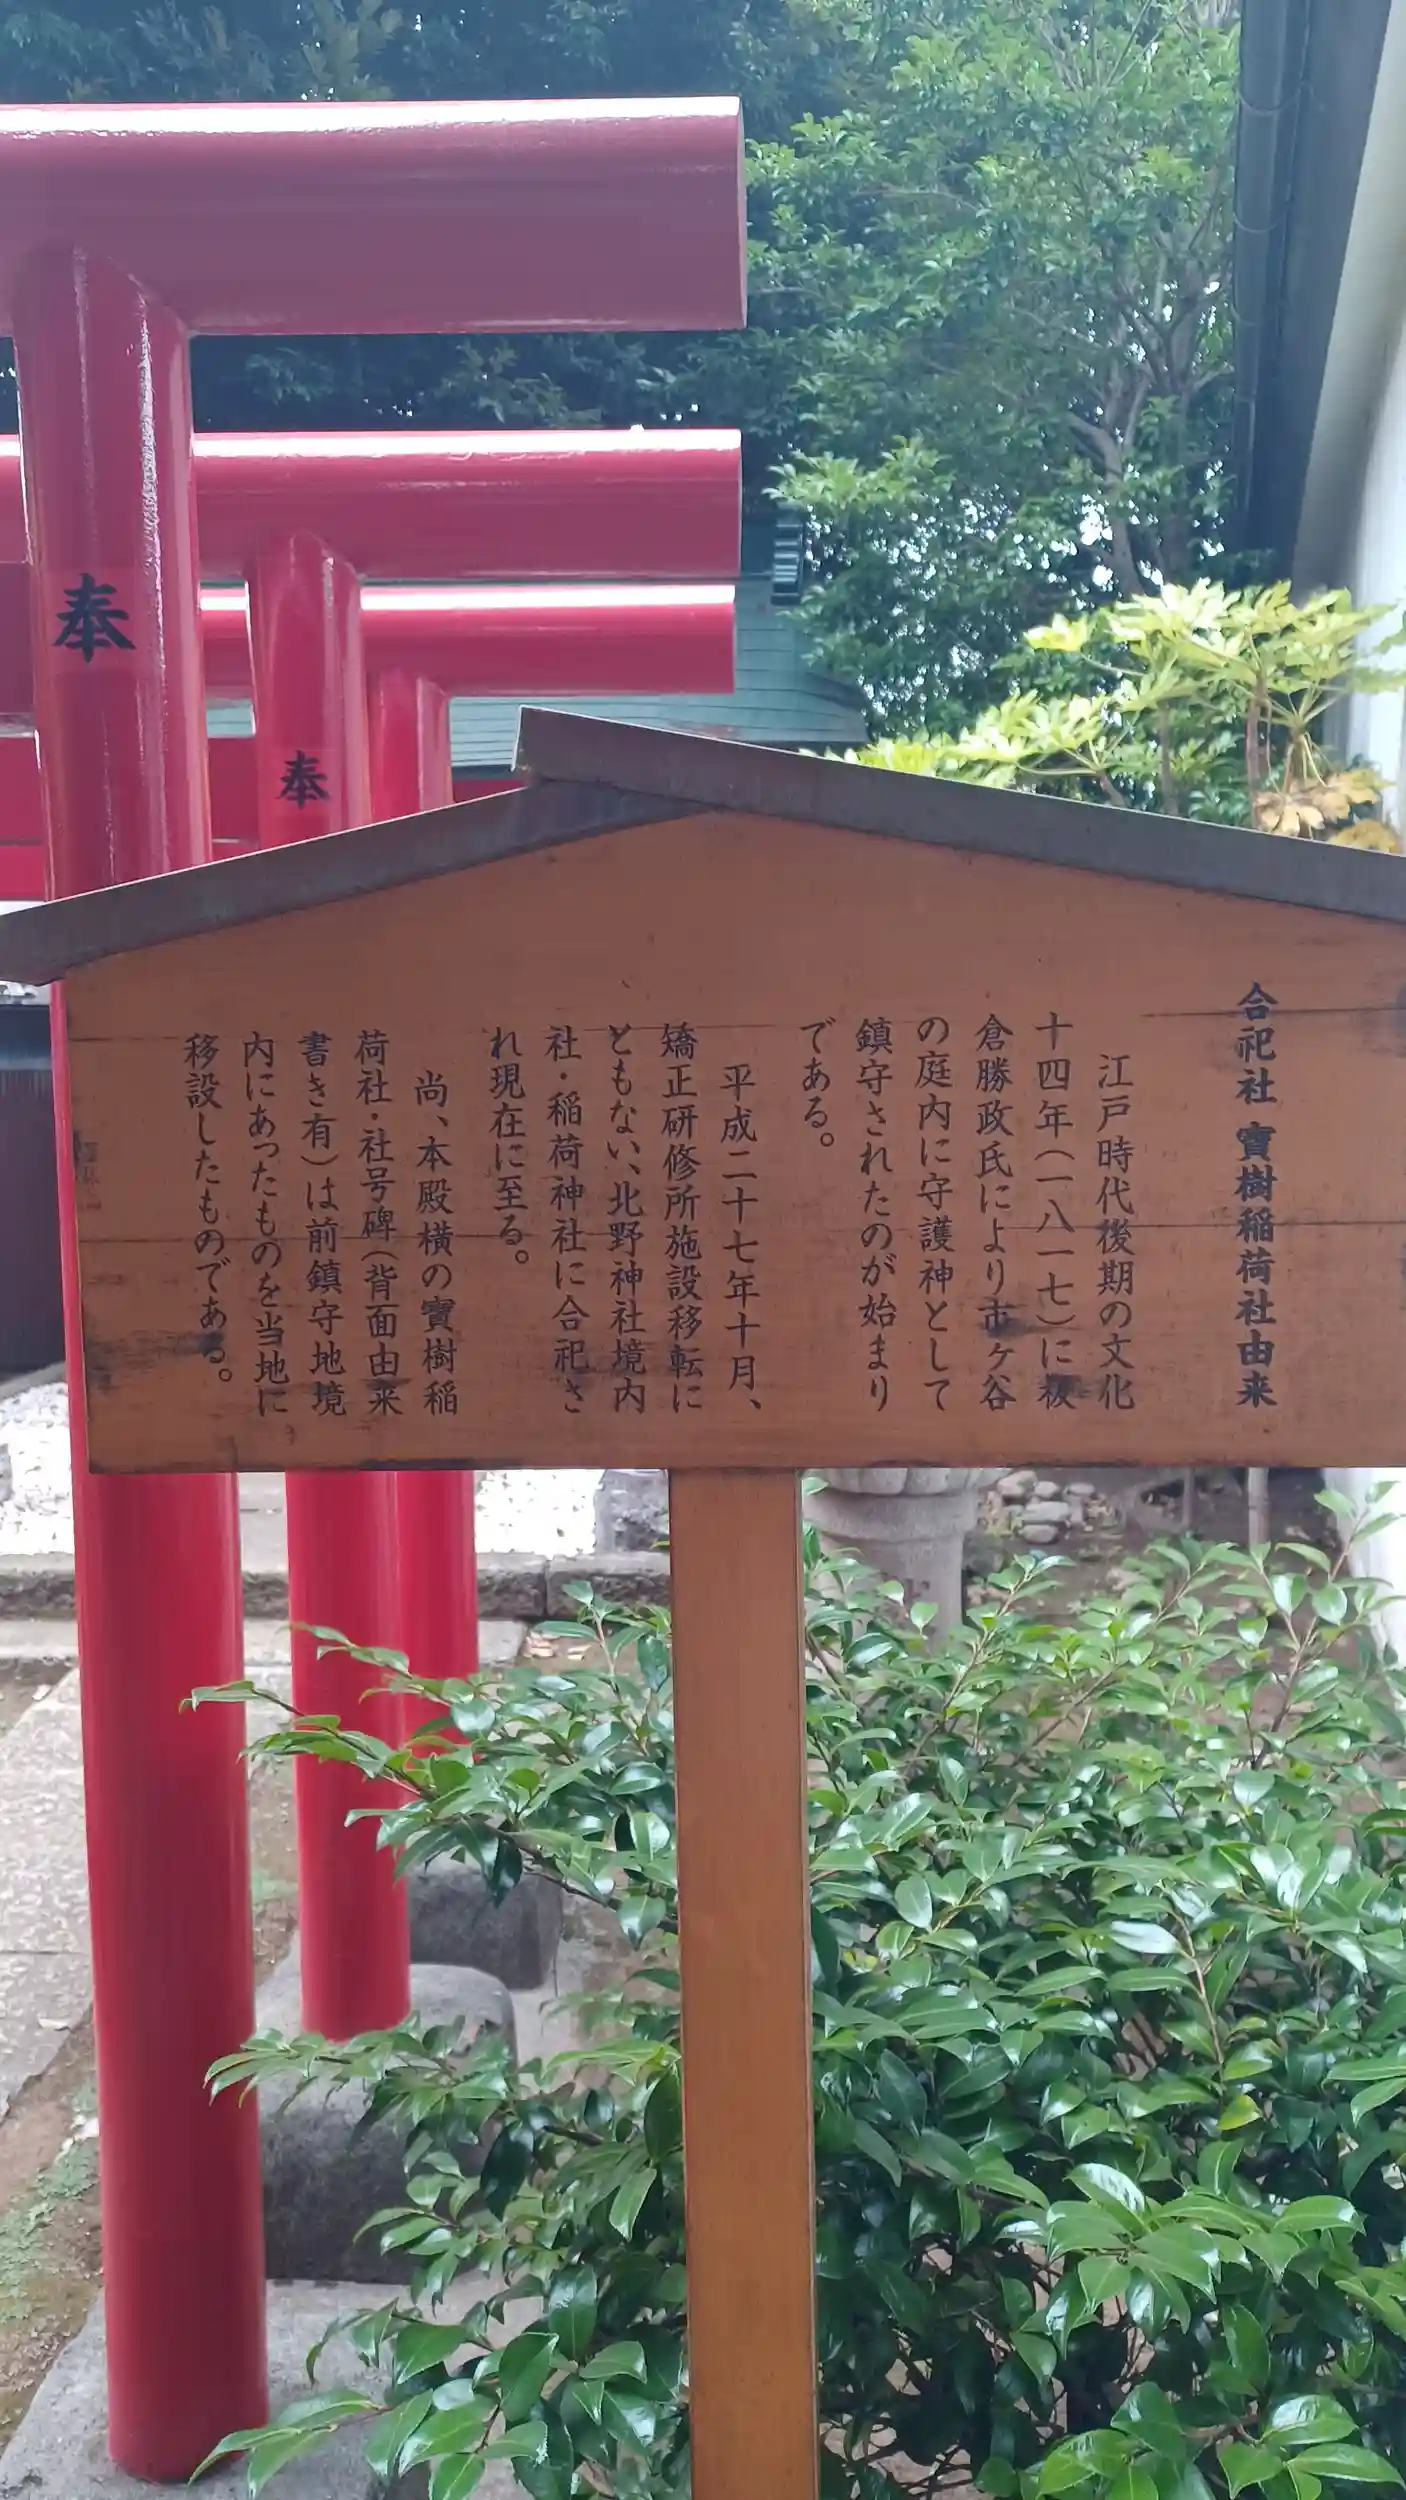 奉
奉
合祀社 寶樹稲荷社由来
江戸時代後期の文化
十四年(一八一七)に板
倉勝政氏により市ヶ谷
の庭内に守護神として
鎮守されたのが始まり
である。
平成二十七年十月、
矯正研修所施設移転に
ともない、北野神社境内
社・稲荷神社に合祀さ
れ現在に至る。
尚、本殿横の寶樹稲
荷社・社号碑(背面由来
書き有)は前鎮守地境
内にあったものを当地に
移設したものである。